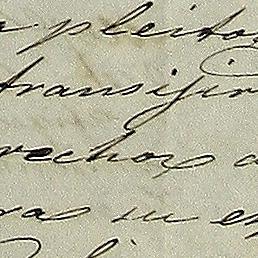 pleitos
transijir
rechos
ras in es